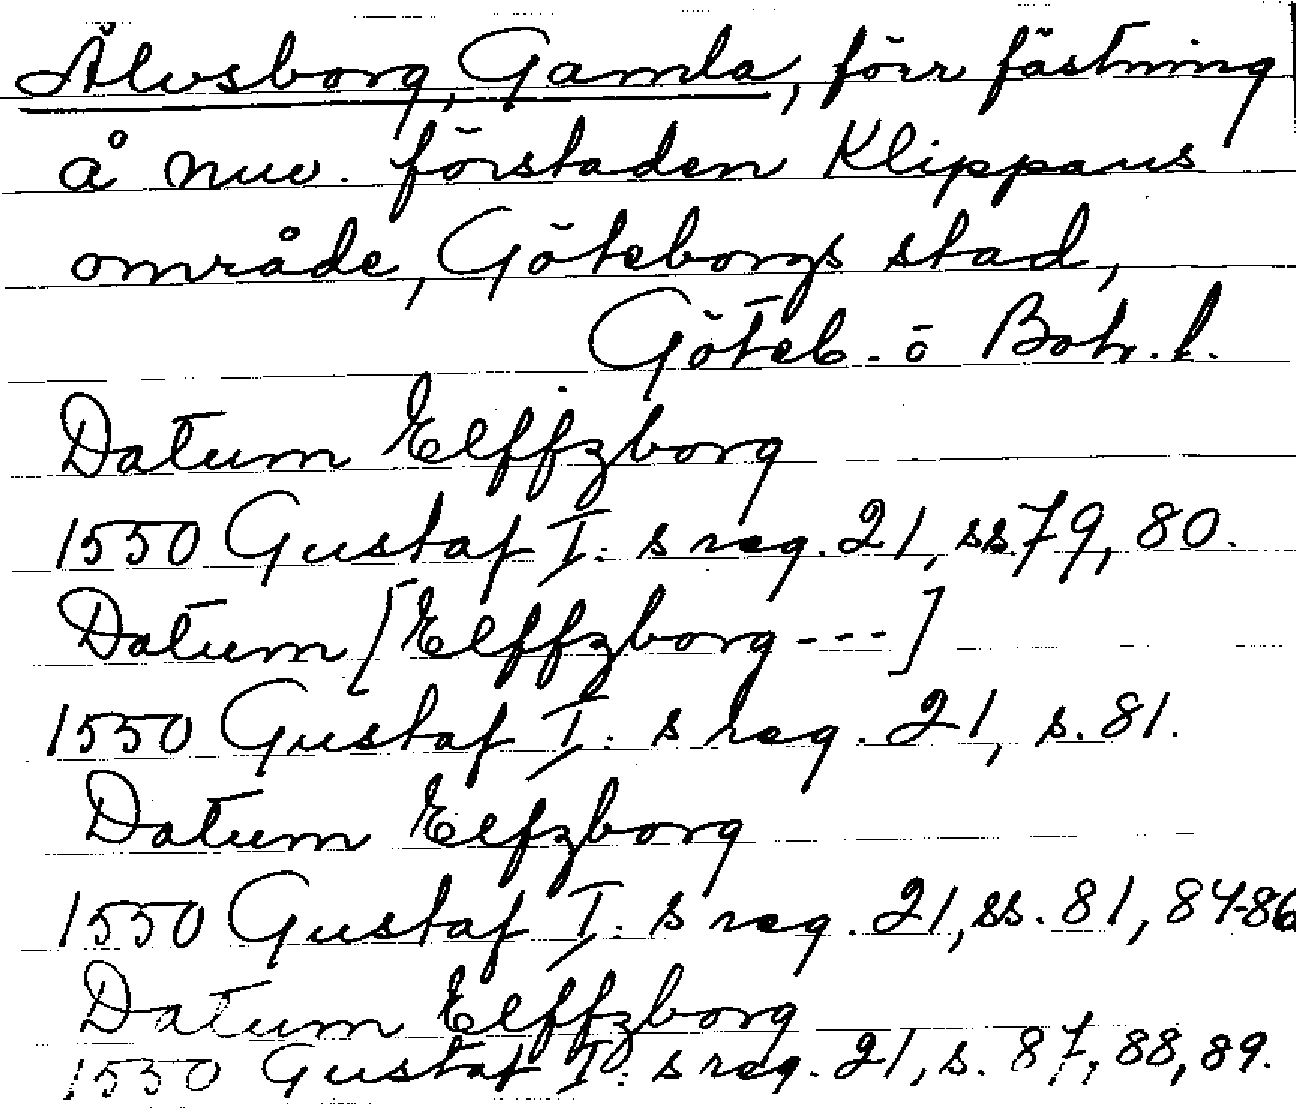 Älvsborg, Gamla, förr fästning
å nuv. förstaden Klippans
område, Göteborgs stad,
Göteb. o Boh. l.
Datum Elffzborg
1550 Gustaf I: s reg. 21, ss 79, 80.
Datum [Elffzborg ---]
1550 Gustaf I: s reg. 21, s. 81.
Datum Elfzborg
1550 Gustaf I: s reg. 21, ss. 81, 84-86
Datum Elffzborg
1550 Gustaf I: s reg. 21, s. 87, 88, 89.